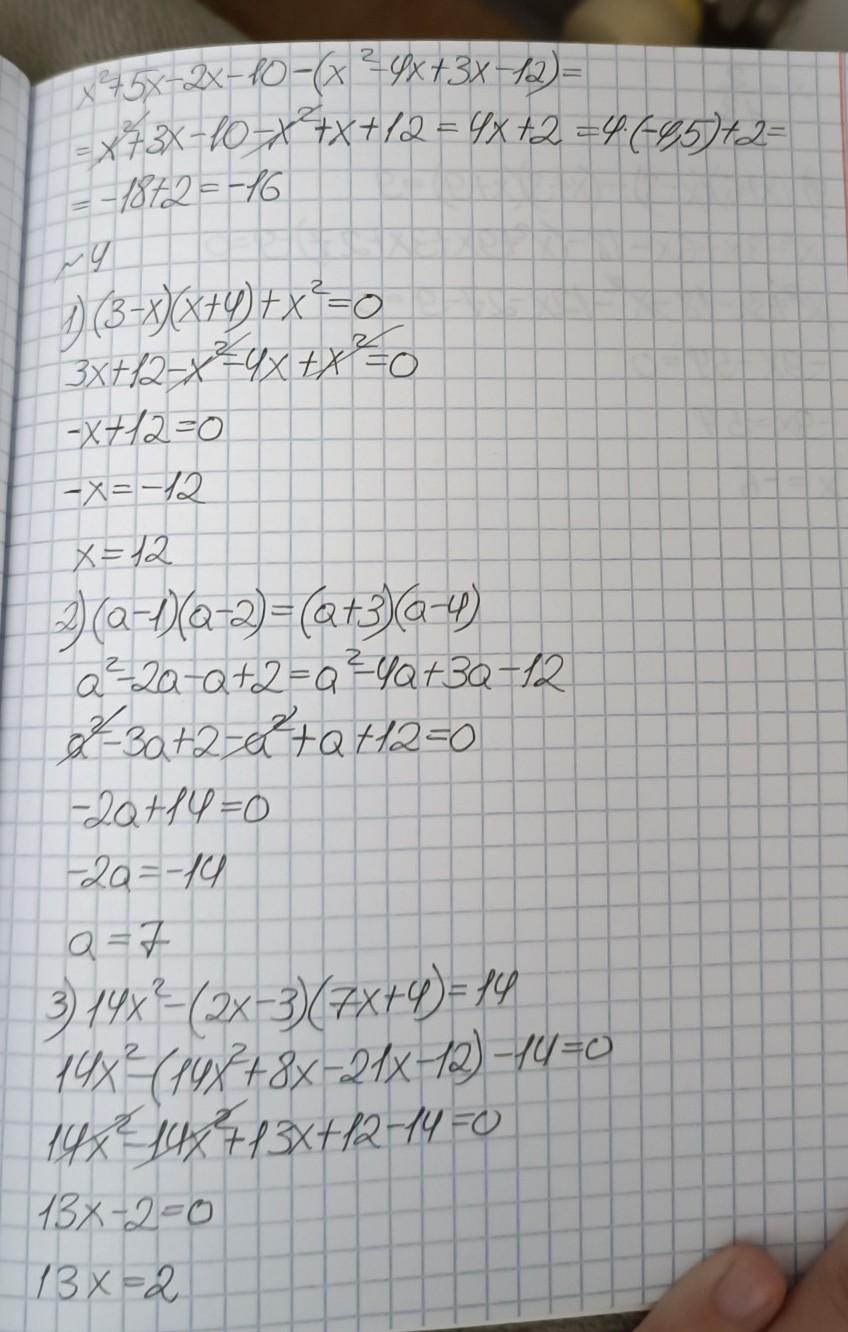 x²+5x-2x-10-(x²-4x+3x-12)=
=x²+3x-10-x²+x+12=4x+2=4·(-4,5)+2=
=-18+2=-16
~4
1)(3-x)(x+4)+x²=0
3x+12-x²-4x+x²=0
-x+12=0
-x=-12
x=12
2)(a-1)(a-2)=(a+3)(a-4)
a²-2a-a+2=a²-4a+3a-12
a²-3a+2-a²+a+12=0
-2a+14=0
-2a=-14
a=7
3)14x²-(2x-3)(7x+4)=14
14x²-(14x²+8x-21x-12)-14=0
14x²-14x²+13x+12-14=0
13x-2=0
13x=2